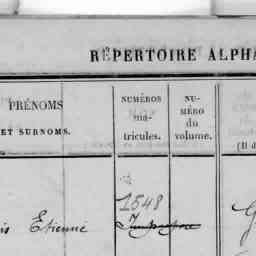 RÉPERTOIRE ALPHA
PRÉNOMS
ET SURNOMS.
NUMÉROS
ma-
tricules.
NU-
MÉRO
du
volume.
(D d
1548
is Etienne
G